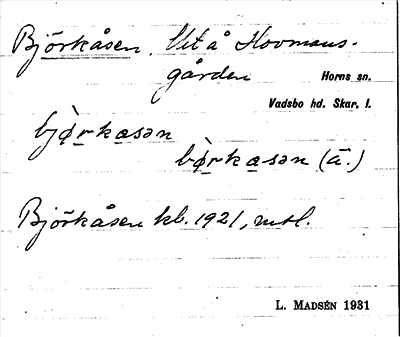 Björkåsen. Ut å Hovmans-
gården
Horns sn.
Vadsbo hd. Skar. l.
bjø̀rkasən
bø̀rkasən (ä.)
Björkåsen kb. 1921, mtl.
L. MADSÉN 1931